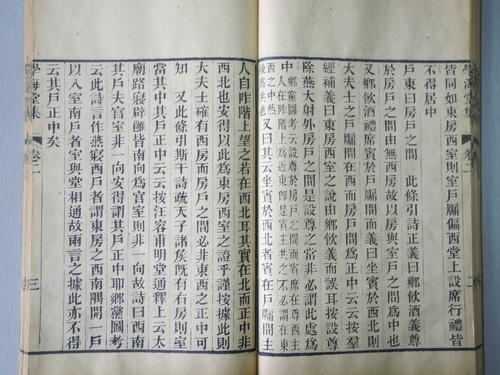 學海堂集
卷二
二
皆同如東房西室則室戶牖偏西堂上設席行禮皆
不得居中
戶東曰房戶之間 此條引詩正義曰鄉飲酒義尊
於房戶之間由無西房故以房與室戶之間為中也
又鄉飲酒禮席賓於戶牖間而義曰坐賓於西北則
大夫士之戶牖間在西而房戶間為正中云云按羣
經補義曰東房西室之說由鄉飲酒義而誤耳按設尊
除燕大射外房戶之間是設尊之常非必謂此處為
中鄉黨圖考云設尊於房戶之間而賓席在尊西
上為近東卽是賓主共之不必謂在東
又曰其云坐賓於西北者賓在戶牖間主
人自阼階上望之若在西北耳其實在北而正中非
西北也安得以此為東房西室之證乎謹按據此則
大夫士確有西房而房戶之間必非東西之正中可
知 又此條引斯干詩疏天子諸矦既有右房則室
當其中其戶正中云云按汪容甫明堂通釋上云太
廟路寢辟雝皆南向為官室則非一向故詩曰西南
其戶夫官室非一向安得謂其戶正中耶鄉黨圖考
云此詩言作燕寢西戶者謂東房之西南隅開一戶
以入室南戶者室與堂相通故兩言之據此亦不得
云其戶正中矣
學海堂集
卷二
三